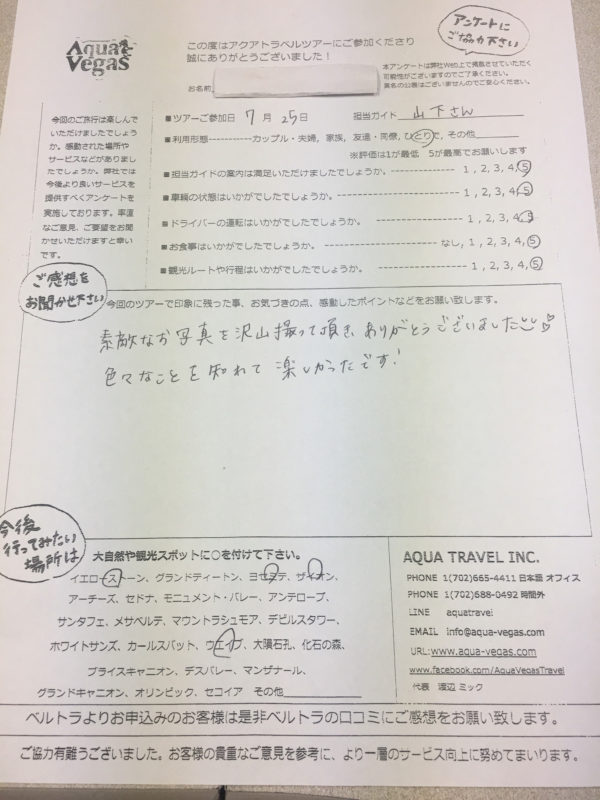 Aqua Vegas
この度はアクアトラベルツアーにご参加くださり
誠にありがとうございました!
アンケートに
ご協力下さい
本アンケートは弊社Web上で掲載させていただく
可能性がございますのでご了承ください。
実名の公表はございませんのでご安心ください。
お名前
今回のご旅行は楽しんで
いただけましたでしょう
か。感動された場所や
サービスなどがありまし
たでしょうか。弊社では
今後より良いサービスを
提供すべくアンケートを
実施しております。率直
なご意見、ご要望をお聞
かせいただけますと幸い
です。
■ツアーご参加日 7月 25日 担当ガイド 山下さん
■利用形態------------カップル・夫婦, 家族, 友達・同僚, ひとりで, その他
※評価は1が最低 5が最高でお願いします
■担当ガイドの案内は満足いただけましたでしょうか。 1, 2, 3, 4, 5
■車輌の状態はいかがでしたでしょうか。 1, 2, 3, 4, 5
■ドライバーの運転はいかがでしたでしょうか。 1, 2, 3, 4, 5
■お食事はいかがでしたでしょうか。 なし, 1, 2, 3, 4, 5
■観光ルートや行程はいかがでしたでしょうか。 1, 2, 3, 4, 5
ご感想を
お聞かせ下さい
今回のツアーで印象に残った事、お気づきの点、感動したポイントなどをお願い致します。
素敵なお写真を沢山撮って頂き、ありがとうございました
色々なことを知れて楽しかったです!
今後
行ってみたい
場所は
大自然や観光スポットに○を付けて下さい。
イエローストーン、グランドティートン、ヨセミテ、ザイオン、
アーチーズ、セドナ、モニュメント・バレー、アンテロープ、
サンタフェ、メサベルデ、マウントラシュモア、デビルスタワー、
ホワイトサンズ、カールスバット、ウエイブ、大隕石孔、化石の森、
ブライスキャニオン、デスバレー、マンザナール、
グランドキャニオン、オリンピック、セコイア その他
AQUA TRAVEL INC.
PHONE 1(702)665-4411 日本語 オフィス
PHONE 1(702)688-0492 時間外
LINE aquatravel
EMAIL info@aqua-vegas.com
URL:www.aqua-vegas.com
www.facebook.com/AquaVegasTravel
代表 渡辺 ミック
ベルトラよりお申込みのお客様は是非ベルトラの口コミにご感想をお願い致します。
ご協力有難うございました。お客様の貴重なご意見を参考に、より一層のサービス向上に努めてまいります。